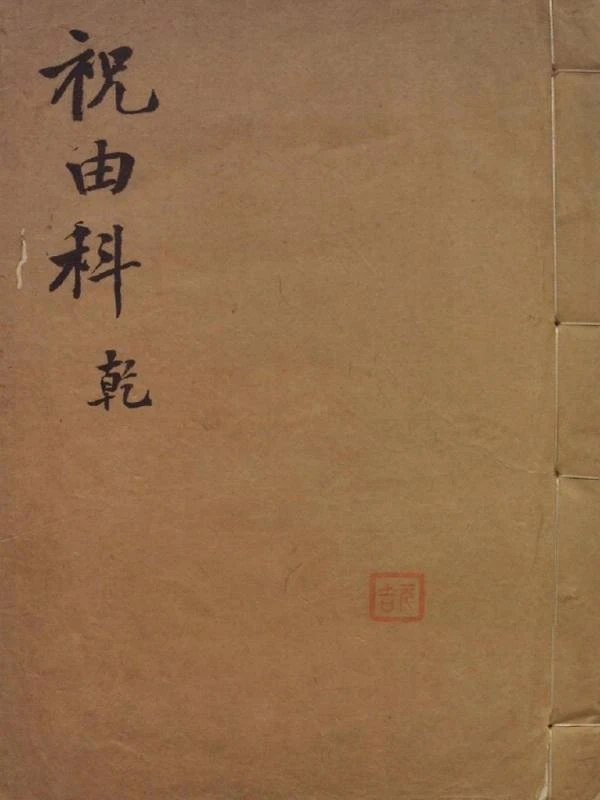 祝由科 乾